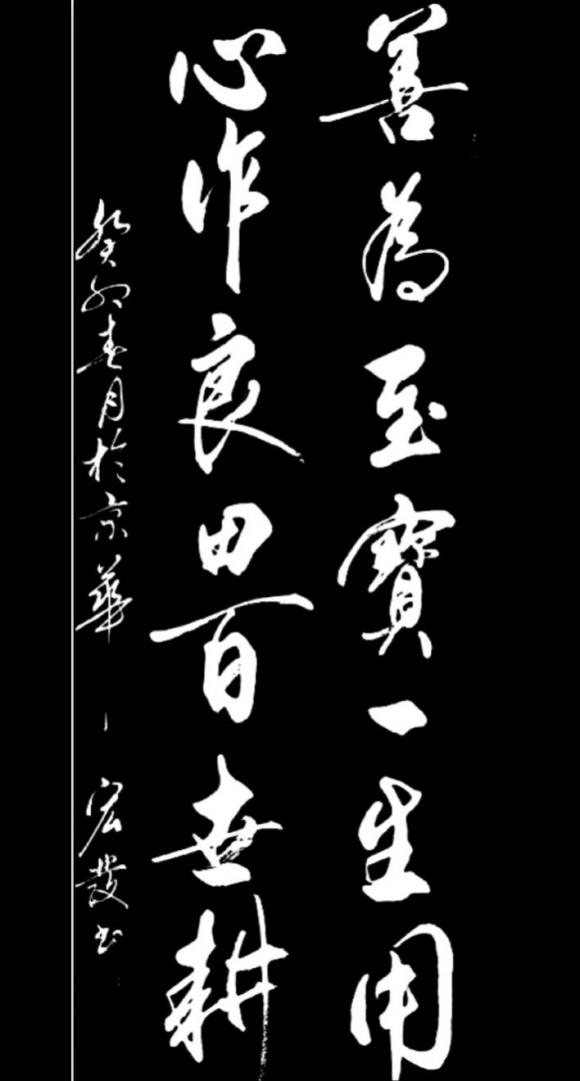 善為至寶一生用
心作良田百世耕
癸卯春月於京華 宏發書